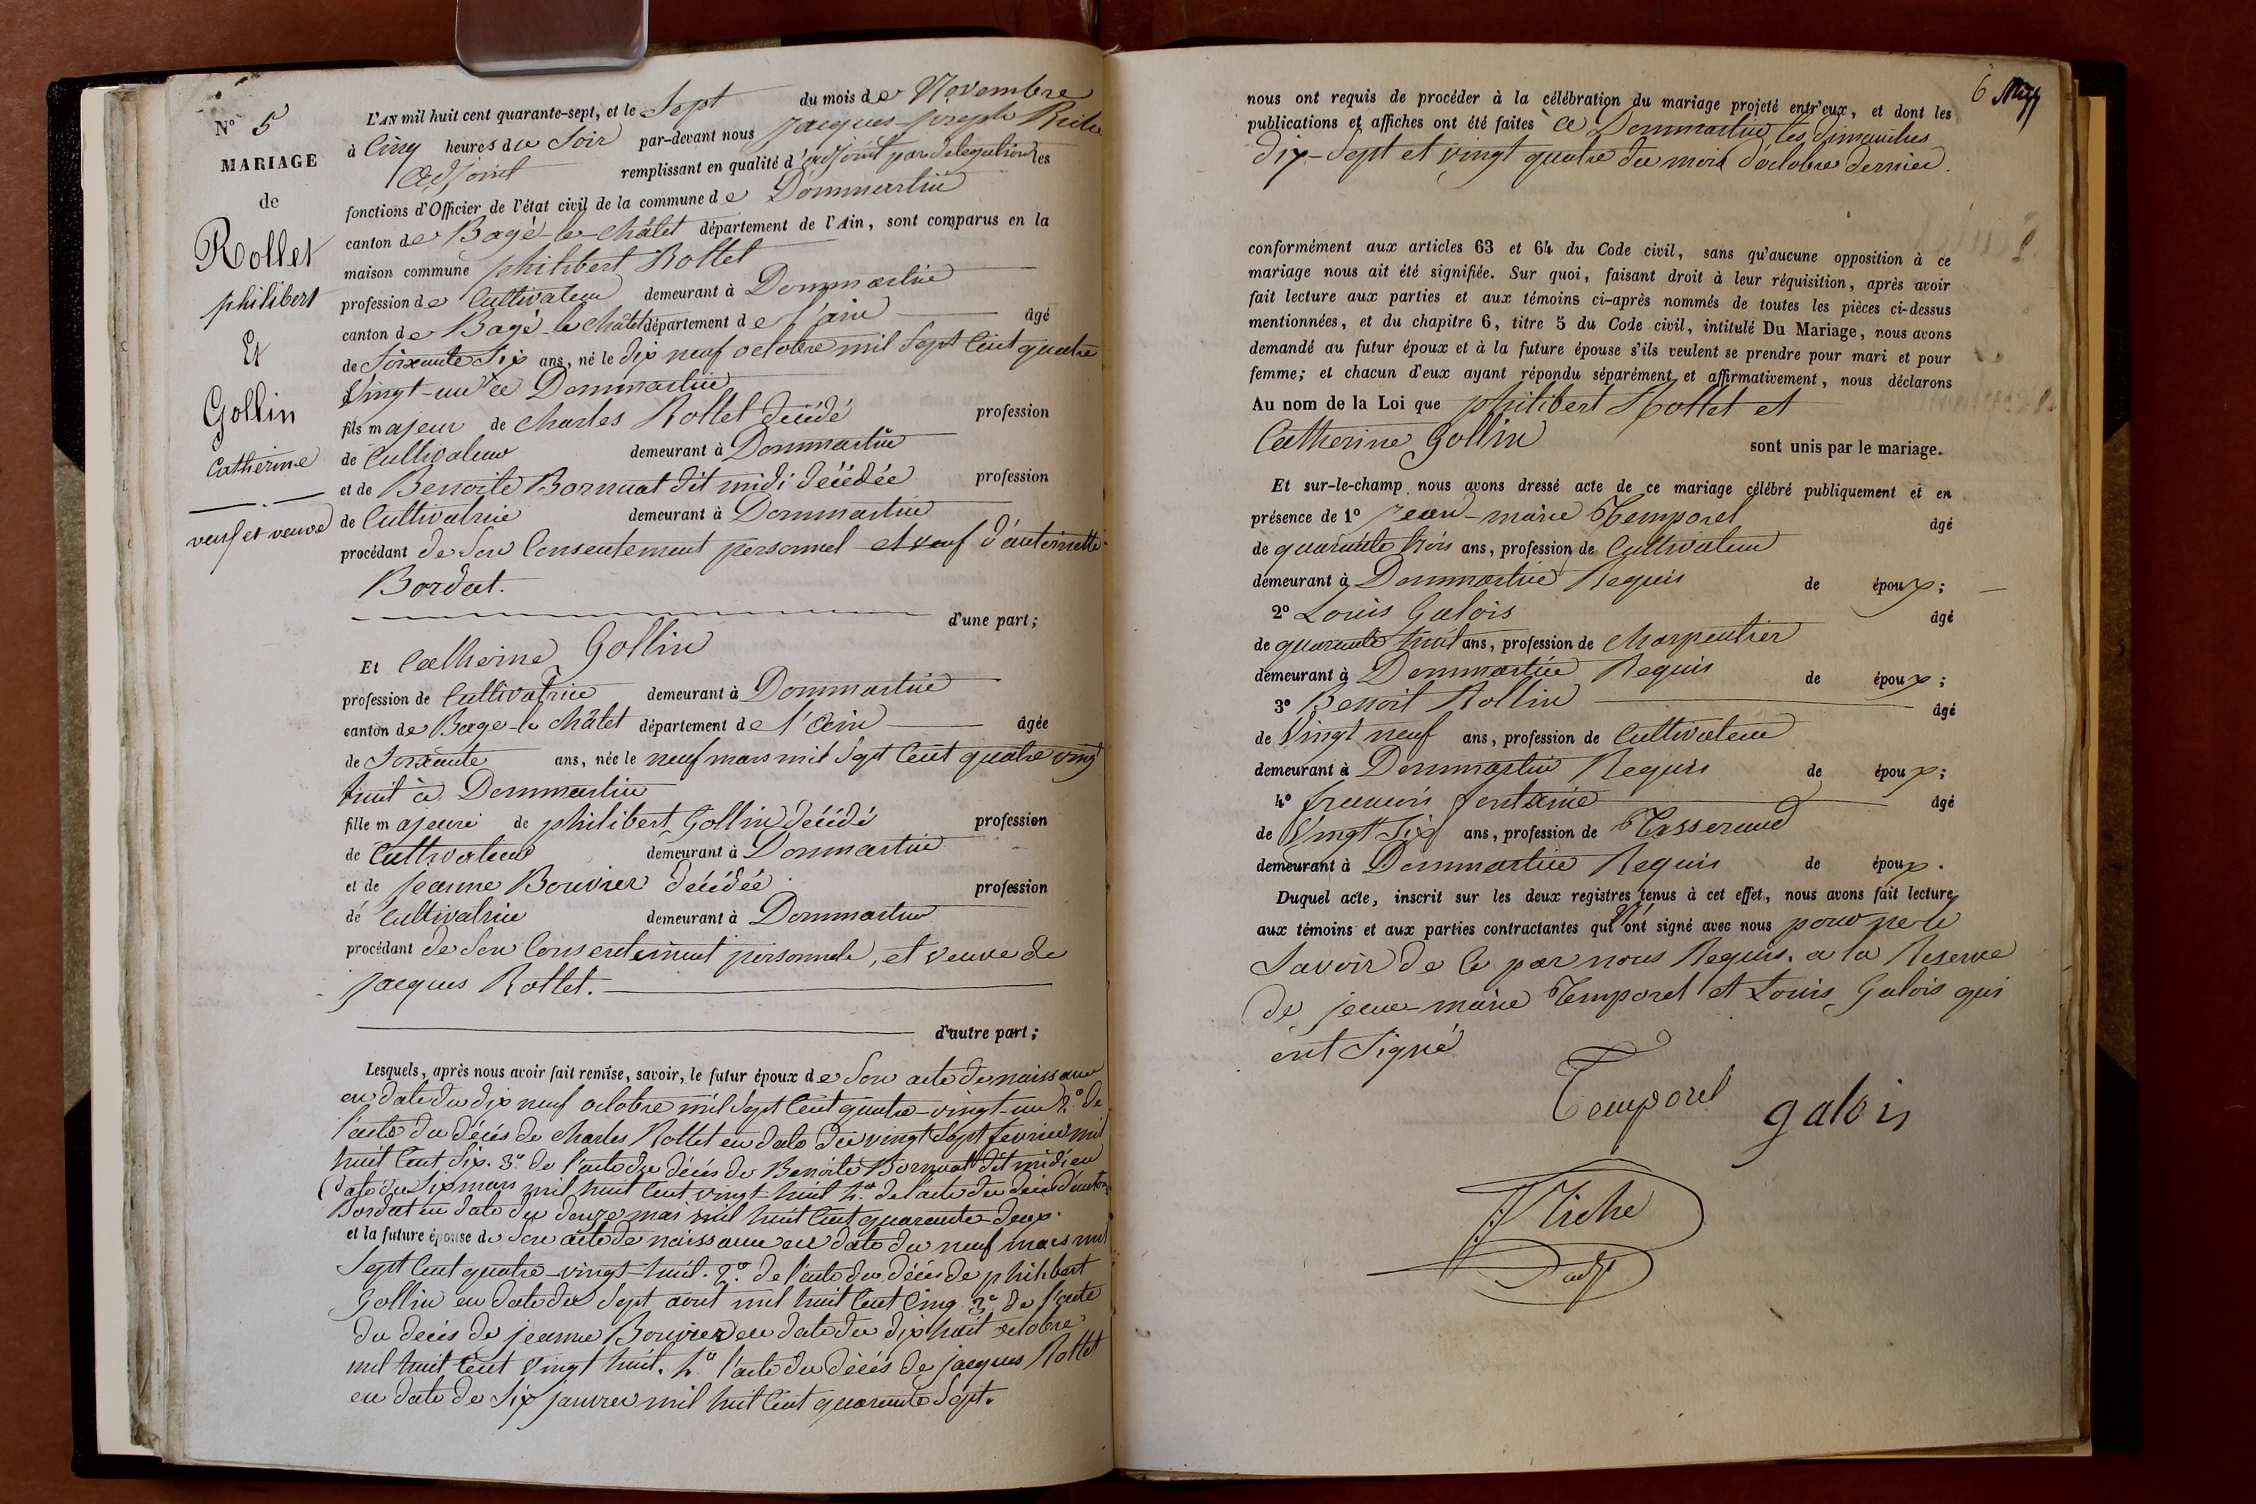 N° 5
MARIAGE
de
Rollet
philibert
Et
Gollin
Catherine
veuf et veuve
L'AN mil huit cent quarante-sept, et le Sept du mois de Novembre
à Cinq heures du Soir par-devant nous jacques-joseph Riche
adjoint remplissant en qualité d'adjoint par délégation les
fonctions d'Officier de l'état civil de la commune de Dommartin
canton de Bagé-le-châtel département de l'Ain, sont comparus en la
maison commune philibert Rollet
profession de Cultivateur demeurant à Dommartin
canton de Bagé-le châtel département de l'ain âgé
de Soixante Six ans, né le dix neuf octobre mil Sept Cent quatre
Vingt-un à Dommartin
fils majeur de charles Rollet décédé profession
de Cultivateur demeurant à Dommartin
et de Benoite Bornuat dit midi décédée profession
de Cultivatrice demeurant à Dommartin
procédant de Son Consentement personnel et veuf d'antoinette
Bordat.
d'une part;
Et Catherine Gollin
profession de Cultivatrice demeurant à Dommartin
canton de Bage-le châtel département de l'ain âgée
de Soixante ans, née le neuf mars mil Sept Cent quatre vingt
huit à Dommartin
fille majeure de philibert Gollin décédé profession
de Cultivateur demeurant à Dommartin
et de jeanne Bouvier décédée. profession
de Cultivatrice demeurant à Dommartin
procédant de Son Consentement personnele, et veuve de
jacques Rollet.
d'autre part;
Lesquels, après nous avoir fait remise, savoir, le futur époux de Son acte de naissance
en date du dix neuf octobre mil Sept Cent quatre-vingt-un 2° de
l'acte du décès de charles Rollet en date du vingt Sept fevrier mil
huit Cent Six. 3° de l'acte du décès de Benoite Bornuat dit midi en
date du Six mars mil huit Cent vingt-huit 4° de l'acte du décès d'antoin
Bordat en date du douze mai mil huit Cent quarante-deux.
et la future épouse de Son acte de naissance en date du neuf mars mil
Sept Cent quatre-vingt-huit. 2° de l'acte du décès de philibert
Gollin en date du Sept aout mil huit Cent Cinq 3° de l'acte
du decès de jeanne Bouvier en date du dix huit octobre
mil huit Cent vingt huit. 4° l'acte du décès de jacques Rollet
en date de Six janvier mil huit Cent quarante Sept.
6
nous ont requis de procéder à la célébration du mariage projeté entr'eux, et dont les
publications et affiches ont été faites à Dommartin les dimanches
dix-Sept et vingt quatre du mois d'octobre dernier.
conformément aux articles 63 et 64 du Code civil, sans qu'aucune opposition à ce
mariage nous ait été signifiée. Sur quoi, faisant droit à leur réquisition, après avoir
fait lecture aux parties et aux témoins ci-après nommés de toutes les pièces ci-dessus
mentionnées, et du chapitre 6, titre 5 du Code civil, intitulé Du Mariage, nous avons
demandé au futur époux et à la future épouse s'ils veulent se prendre pour mari et pour
femme; et chacun d'eux ayant répondu séparément et affirmativement, nous déclarons
Au nom de la Loi que philibert Rollet et
Catherine Gollin sont unis par le mariage.
Et sur-le-champ nous avons dressé acte de ce mariage célébré publiquement et en
présence de 1° jean-marie Temporel âgé
de quarante trois ans, profession de Cultivateur
demeurant à Dommartin Requis de époux;
2° Louis Galois âgé
de quarante huit ans, profession de charpentier
demeurant à Dommartin Requis de époux;
3° Benoit Rollin âgé
de Vingt neuf ans, profession de Cultivateur
demeurant à Dommartin Requis de époux;
4° francois fontaine âgé
de Vingt Six ans, profession de Tisserand
demeurant à Dommartin Requis de époux.
Duquel acte, inscrit sur les deux registres tenus à cet effet, nous avons fait lecture
aux témoins et aux parties contractantes qui n'ont signé avec nous pour ne le
Savoir de Ce par nous Requis. a la Reserve
de jean-marie Temporel et Louis Galois qui
ont Signé
Temporel
galois
Riche
adjt